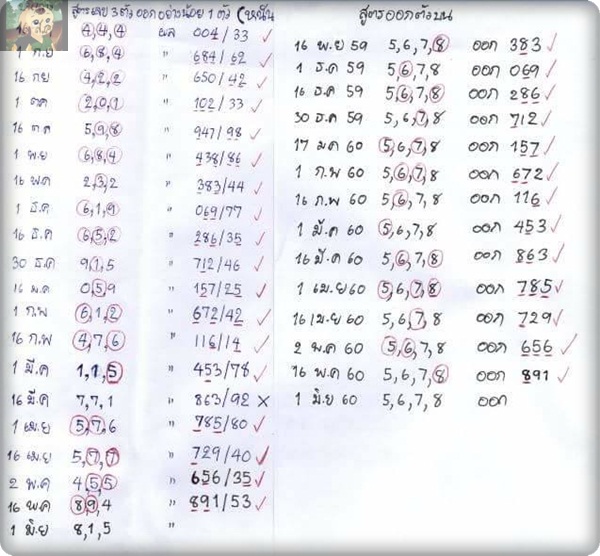 สูตรเลข 3 ตัว ออกอย่างน้อย 1 ตัว
16 ส.ค 4,4,4 ผล 004/33 ✓
1 ก.ย 6,8,4 " 684/62 ✓
16 กย 4,2,2 " 650/42 ✓
1 ตค 2,0,1 " 102/33 ✓
16 ตค 5,9,8 " 947/98 ✓
1 พ.ย 6,8,4 " 438/86 ✓
16 พ.ค 2,3,2 " 383/44 ✓
1 ธ.ค 6,1,9 " 069/77 ✓
16 ธ.ค 6,5,2 " 286/35 ✓
30 ธ.ค 9,1,5 " 712/46 ✓
16 ม.ค 0,5,9 " 157/25 ✓
1 ก.พ 6,1,2 " 672/42 ✓
16 ก.พ 4,7,6 " 116/14 ✓
1 มี.ค 1,1,5 " 453/78 ✓
16 มี.ค 7,7,1 " 863/92 ×
1 เม.ย 5,7,6 " 785/80 ✓
16 เม.ย 5,7,7 " 729/40 ✓
2 พ.ค 4,5,5 " 656/35 ✓
16 พ.ค 8,9,4 " 891/53 ✓
1 มิ.ย 8,1,5 "
สูตรออกตัวบน
16 พ.ย 59 5,6,7,8 ออก 383 ✓
1 ธ.ค 59 5,6,7,8 ออก 069 ✓
16 ธ.ค 59 5,6,7,8 ออก 286 ✓
30 ธ.ค 59 5,6,7,8 ออก 712 ✓
17 ม.ค 60 5,6,7,8 ออก 157 ✓
1 ก.พ 60 5,6,7,8 ออก 672 ✓
16 ก.พ 60 5,6,7,8 ออก 116 ✓
1 มี.ค 60 5,6,7,8 ออก 453 ✓
16 มี.ค 60 5,6,7,8 ออก 863 ✓
1 เม.ย 60 5,6,7,8 ออก 785 ✓
16 เม.ย 60 5,6,7,8 ออก 729 ✓
2 พ.ค 60 5,6,7,8 ออก 656 ✓
16 พ.ค 60 5,6,7,8 ออก 891 ✓
1 มิ.ย 60 5,6,7,8 ออก